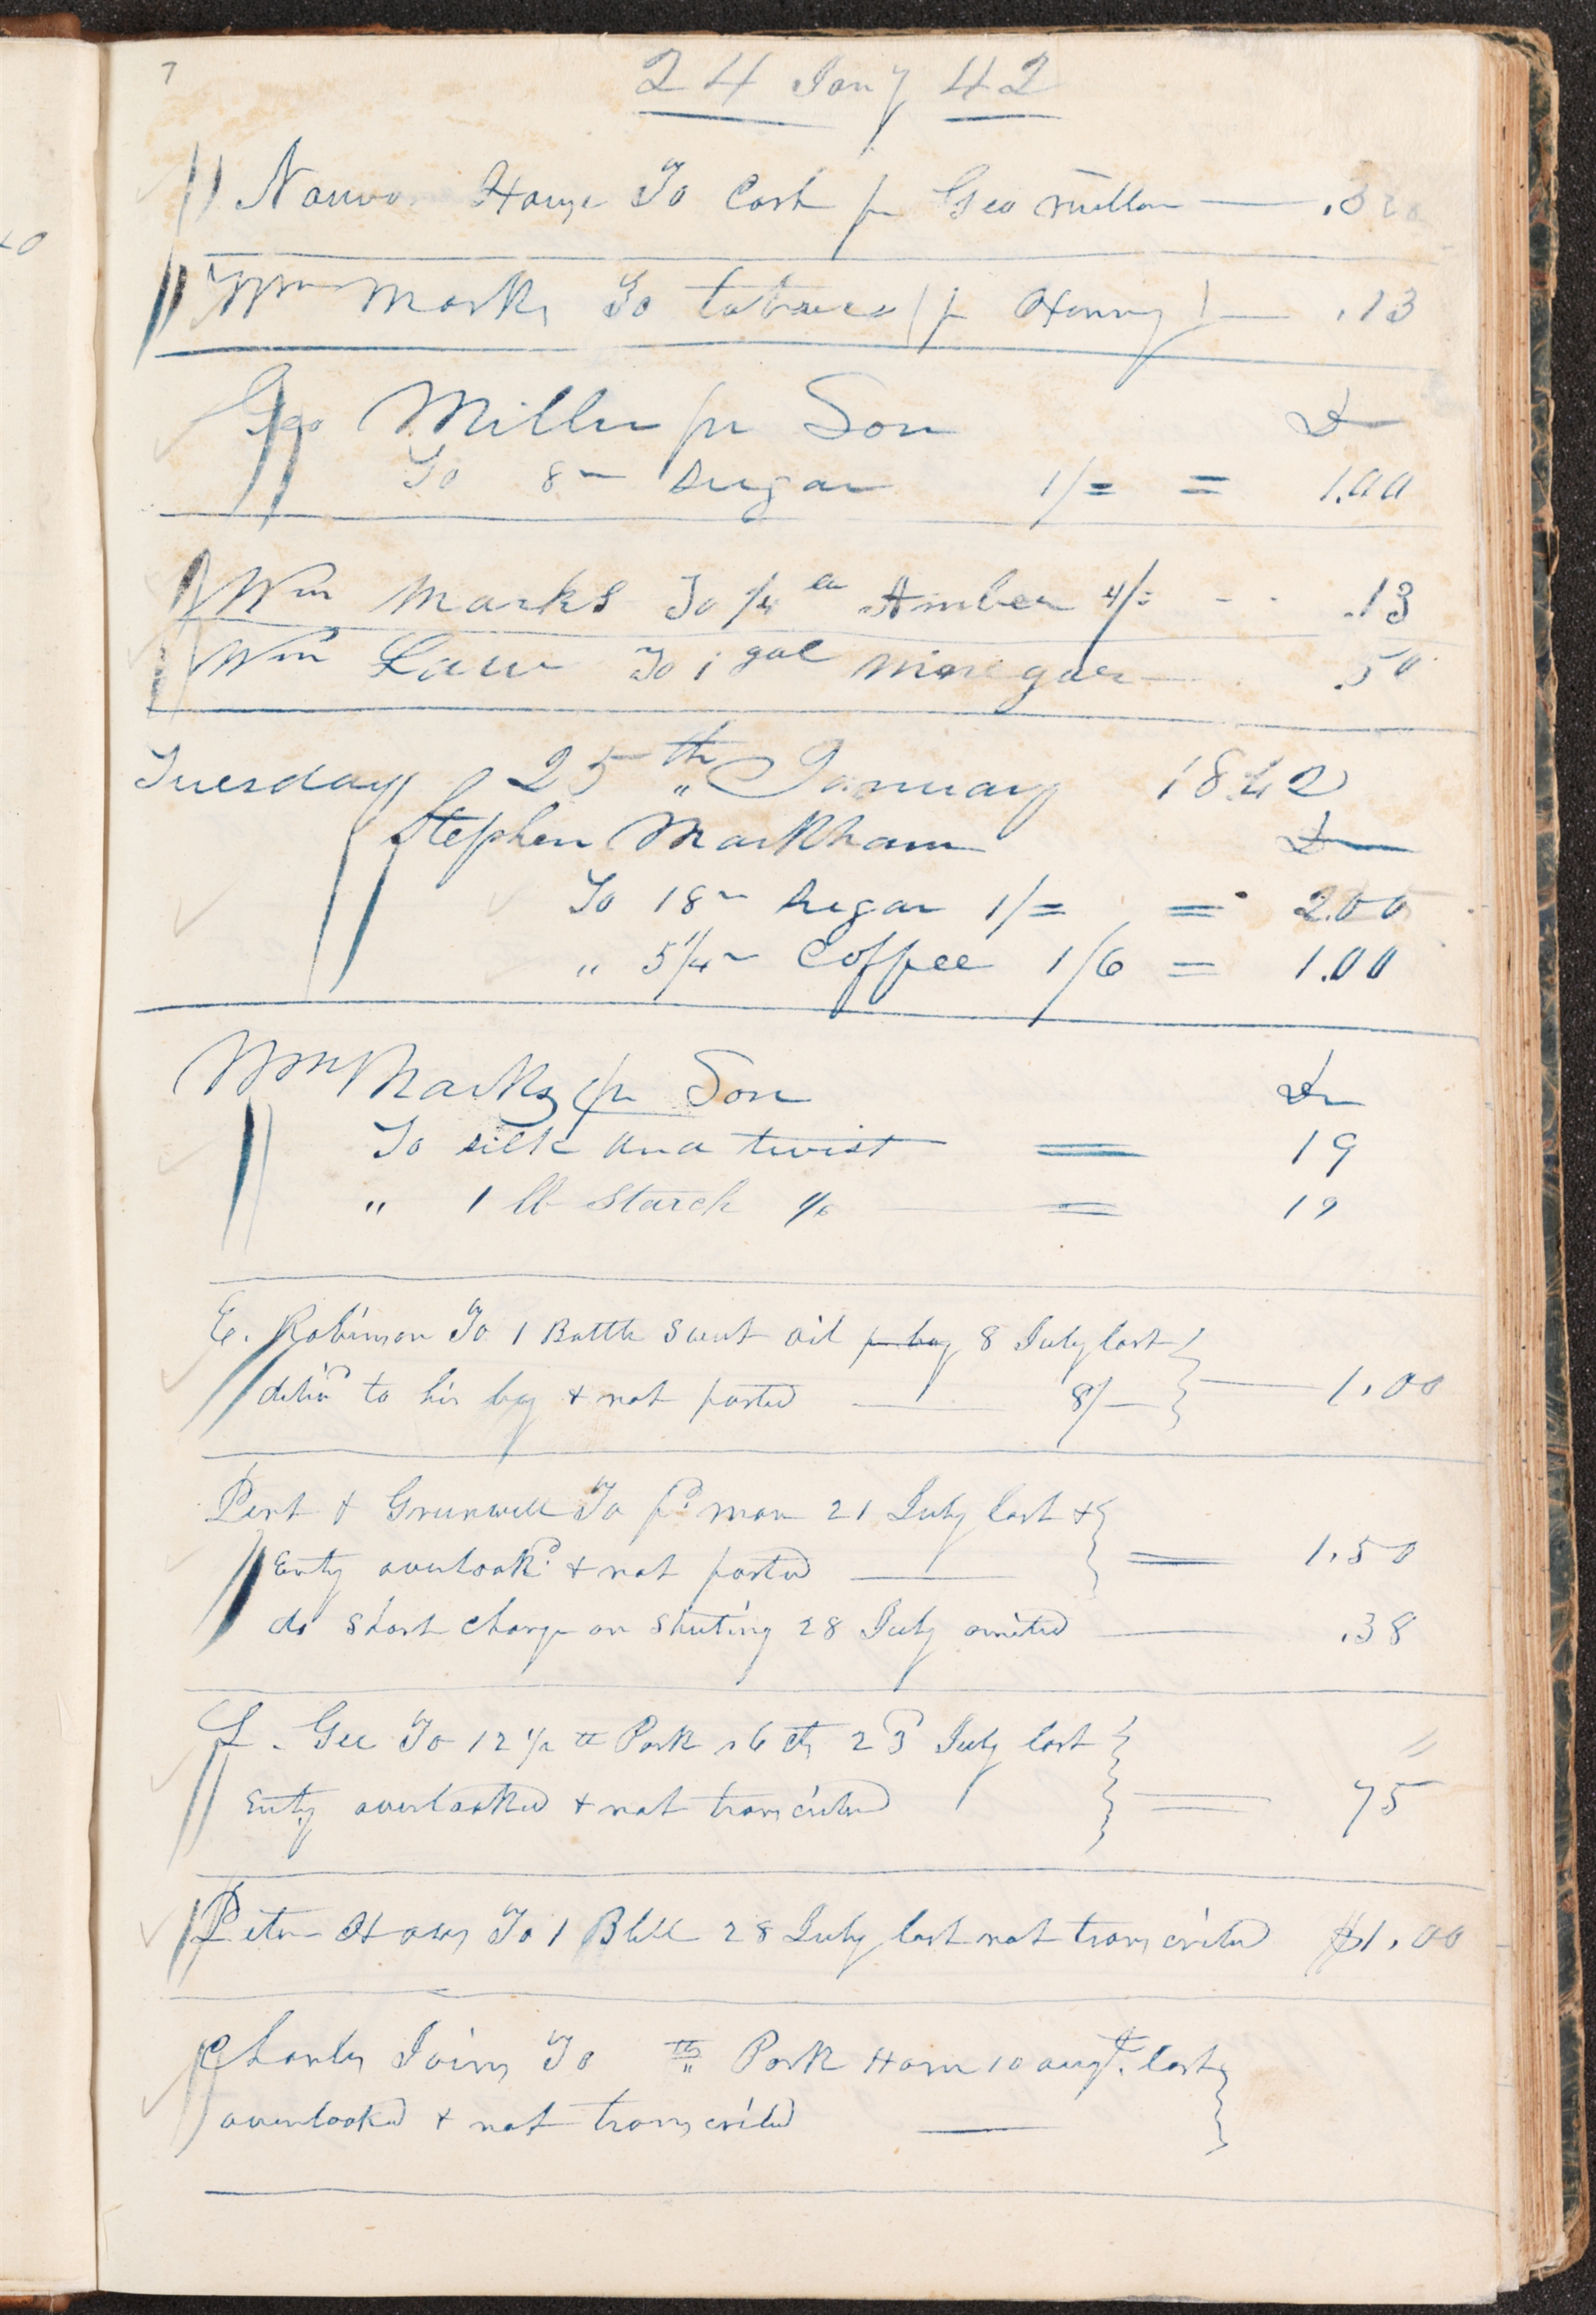 7
24 Jany 42
Nauvoo House To Cash pr Geo Miller — .3
Wm Marks To tobacco (pr Henry) — .13
Geo Miller pr Son Dr
To 8 " Sugar 1/= = 1.00
Wm Marks To 1/4 Amber 4/= - - .13
Wm Law To 1 gal Vinegar .50
Tuesday 25th " January 1842
Stephen Markham Dr
To 18 " Sugar 1/= = 2.00
" 5 1/4 " Coffee 1/6 = 1.00
Wm Marks pr Son Dr
To silk and twist = 19
" 1 lb Starch = 19
E. Robinson To 1 Bottle Sweet oil pr boy 8 July last
delivd to his boy & not posted — 8/— — 1.00
Pert & Grunwell To pr man 21 July last &
Enty overlookd & not posted — = 1.50
do Short charge on Shirting 28 July omited — .38
L. Gee To 12 1/2 lb Pork a 6 cts 23 July last
Enty overlooked & not transcribed = 75
Peter Haws To 1 Bbll 28 July last not transcribed $1.00
Charles Ivins To lb " Pork Ham 10 augt. last
overlooked & not transcribed —